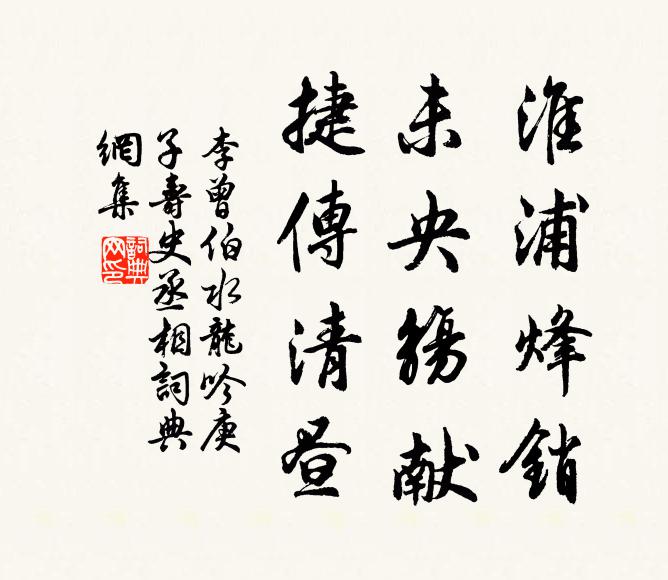 淮浦烽銷
未央觴献
捷傳清晝
李曾伯水龍吟庚
子壽史丞相詞典
網集
詞典網印